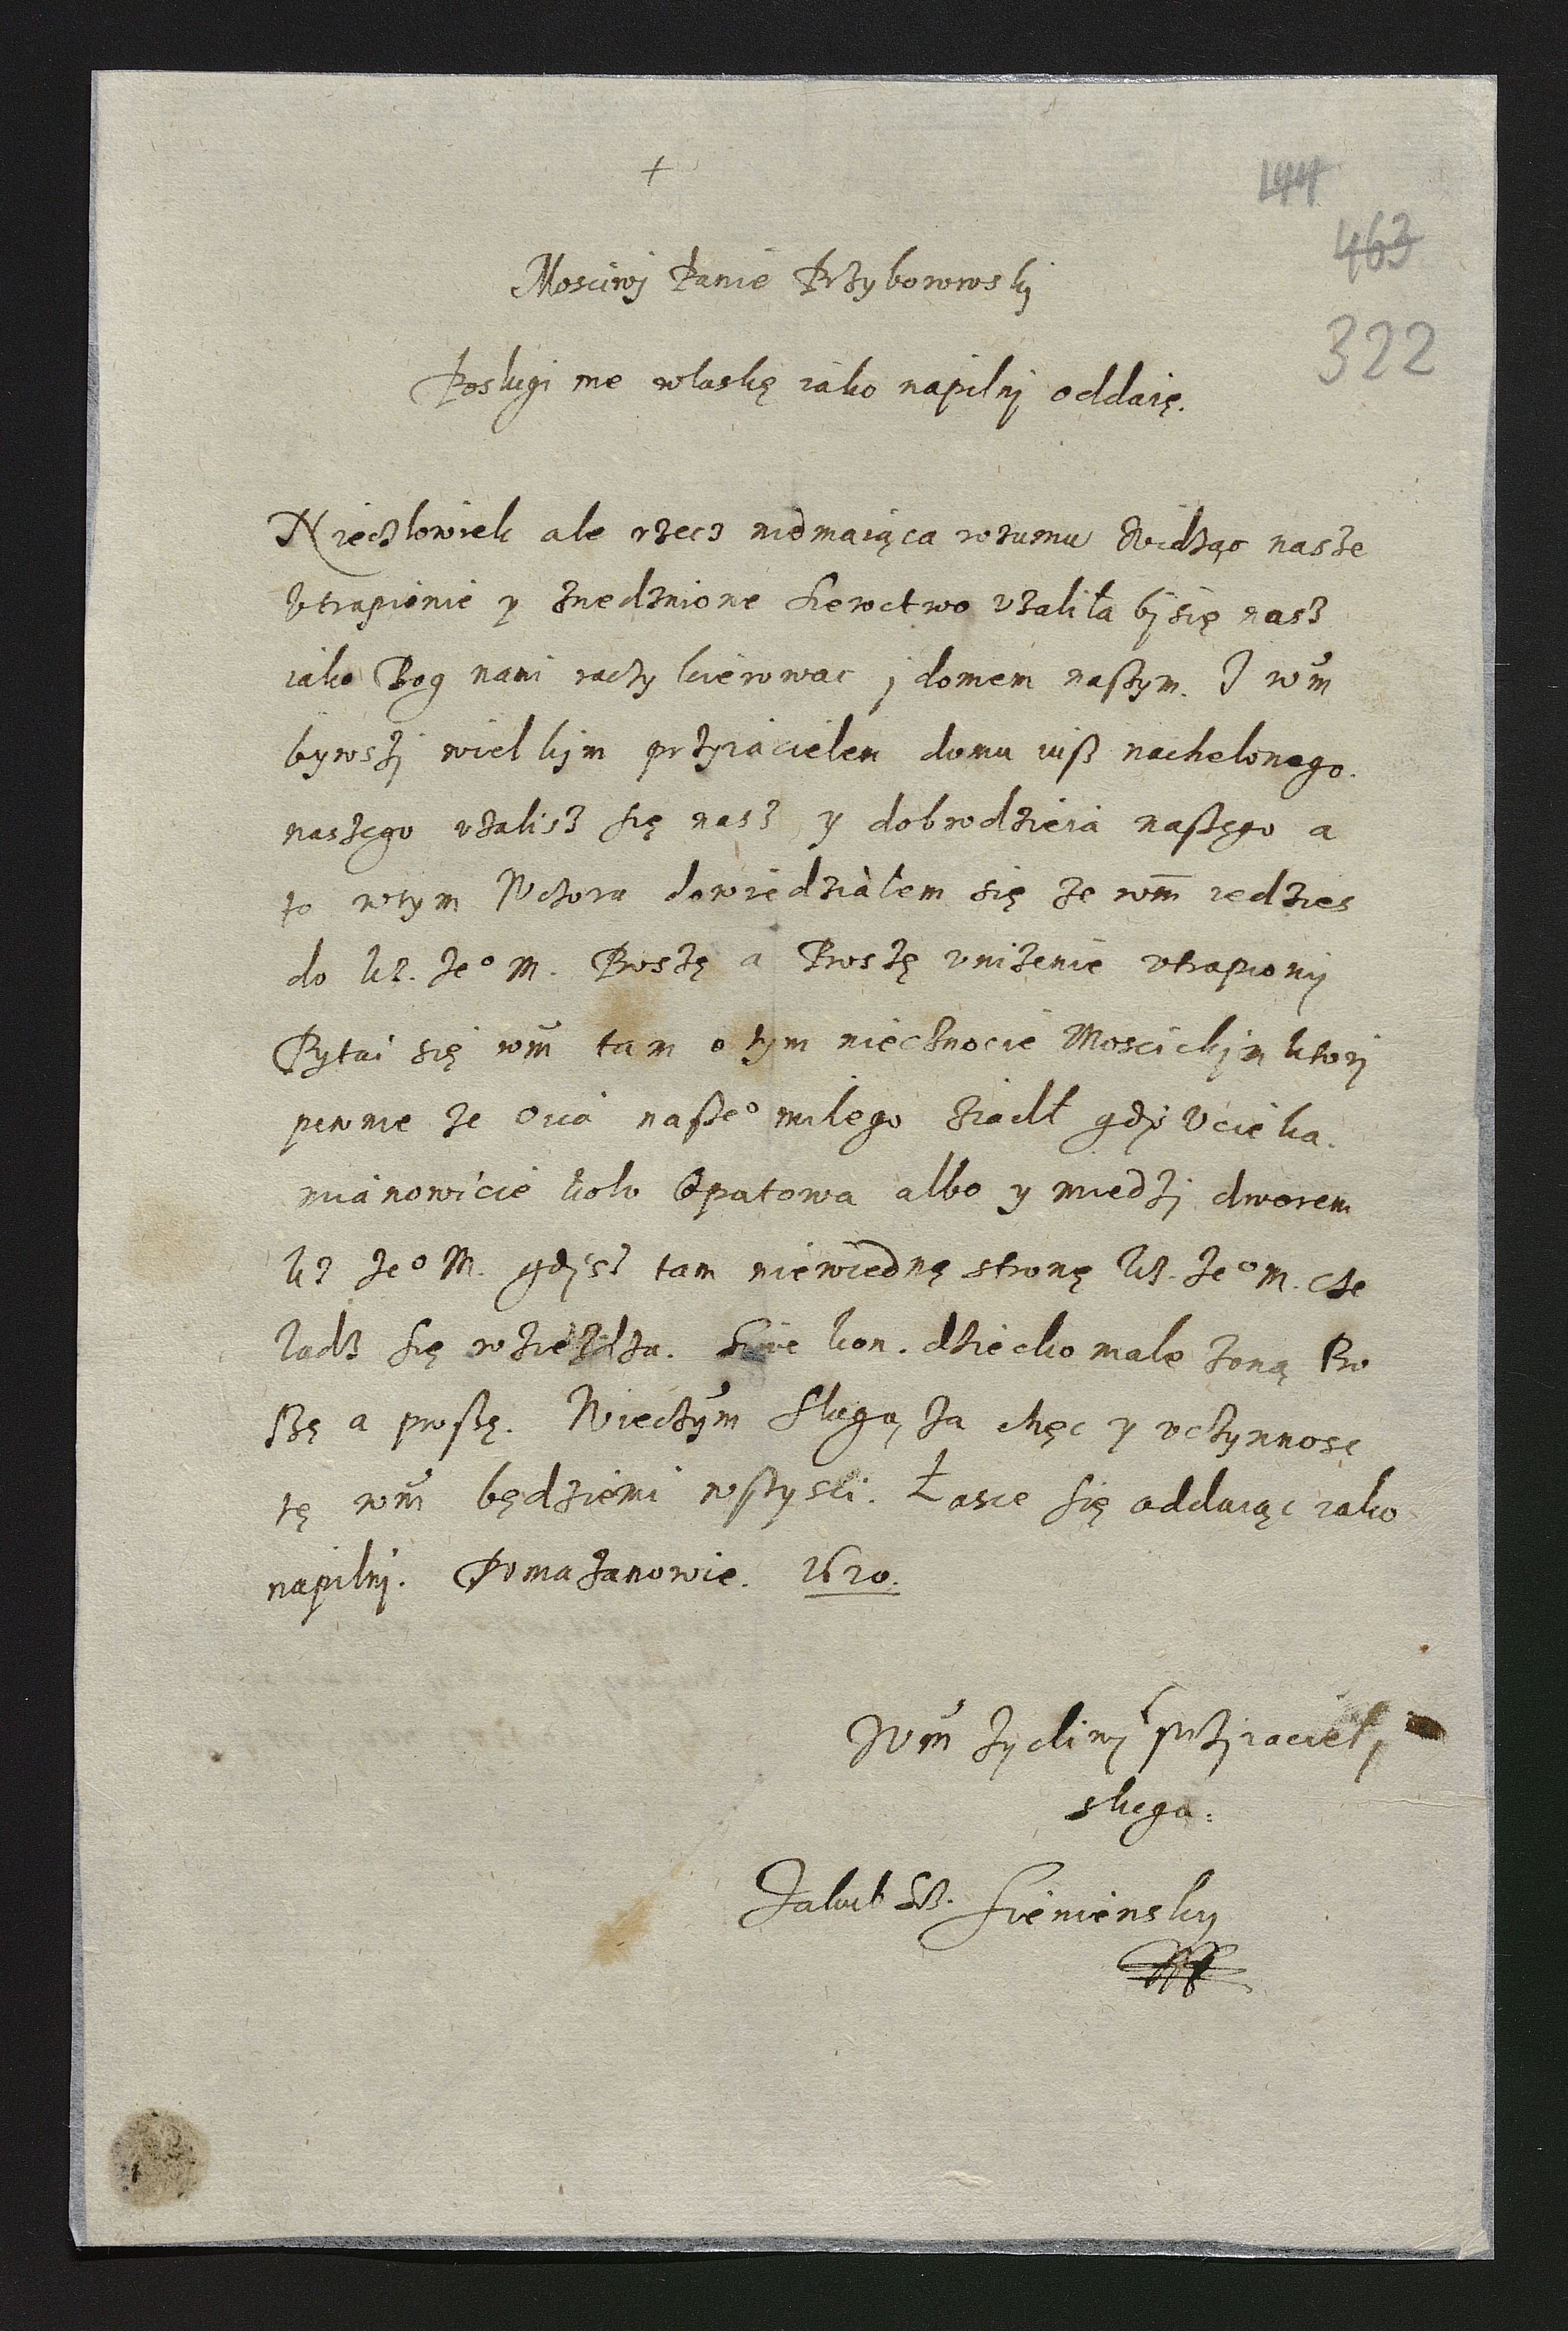 +
144
463
322
Mosciwj Panie Przybowwskj
Poslugi me wlaskę iako napilnj oddaię.
Nieczlowiek ale rzecz niemaiąca rozumu Widząc nasze
Vtrapienie y znedznione sieroctwo vzaliła bj się nasz
iako Bog nami raczy kierowac j domem naszym. I wm
bywszj wielkjm przyiacielem domu iusz nachelonego.
naszego vzalisz się nasz y dobrodzieia naszego a
to wtym Wczora dowiedziałem się ze wm iedzies
do kz. Jeo M. Proszę a Proszę vnizenie vtrapionj
Pytai się wm tam o tym niecznocie Moscickjm ktorj
pewnie ze Oica naszeo milego ziadł gdj Vcieka.
mianowicie kolo Opatowa albo y miedzj dworem
kz Jeo M. gdjsz tam niewiednę stronę kz. Jeo M. cze
ladz się rozieżdza. Siwe kon. dziecko male zoną Pro
szę a proszę. Wiecznym Slugą za chęc y vczynnosc
tę wm będziemi wszysci. Łasce się oddaiąc iako
napilnj. Pomazanowie. 1620.
Wm zycliwj przjiaciel j
sluga.
Jakub Sz. Sienienskj